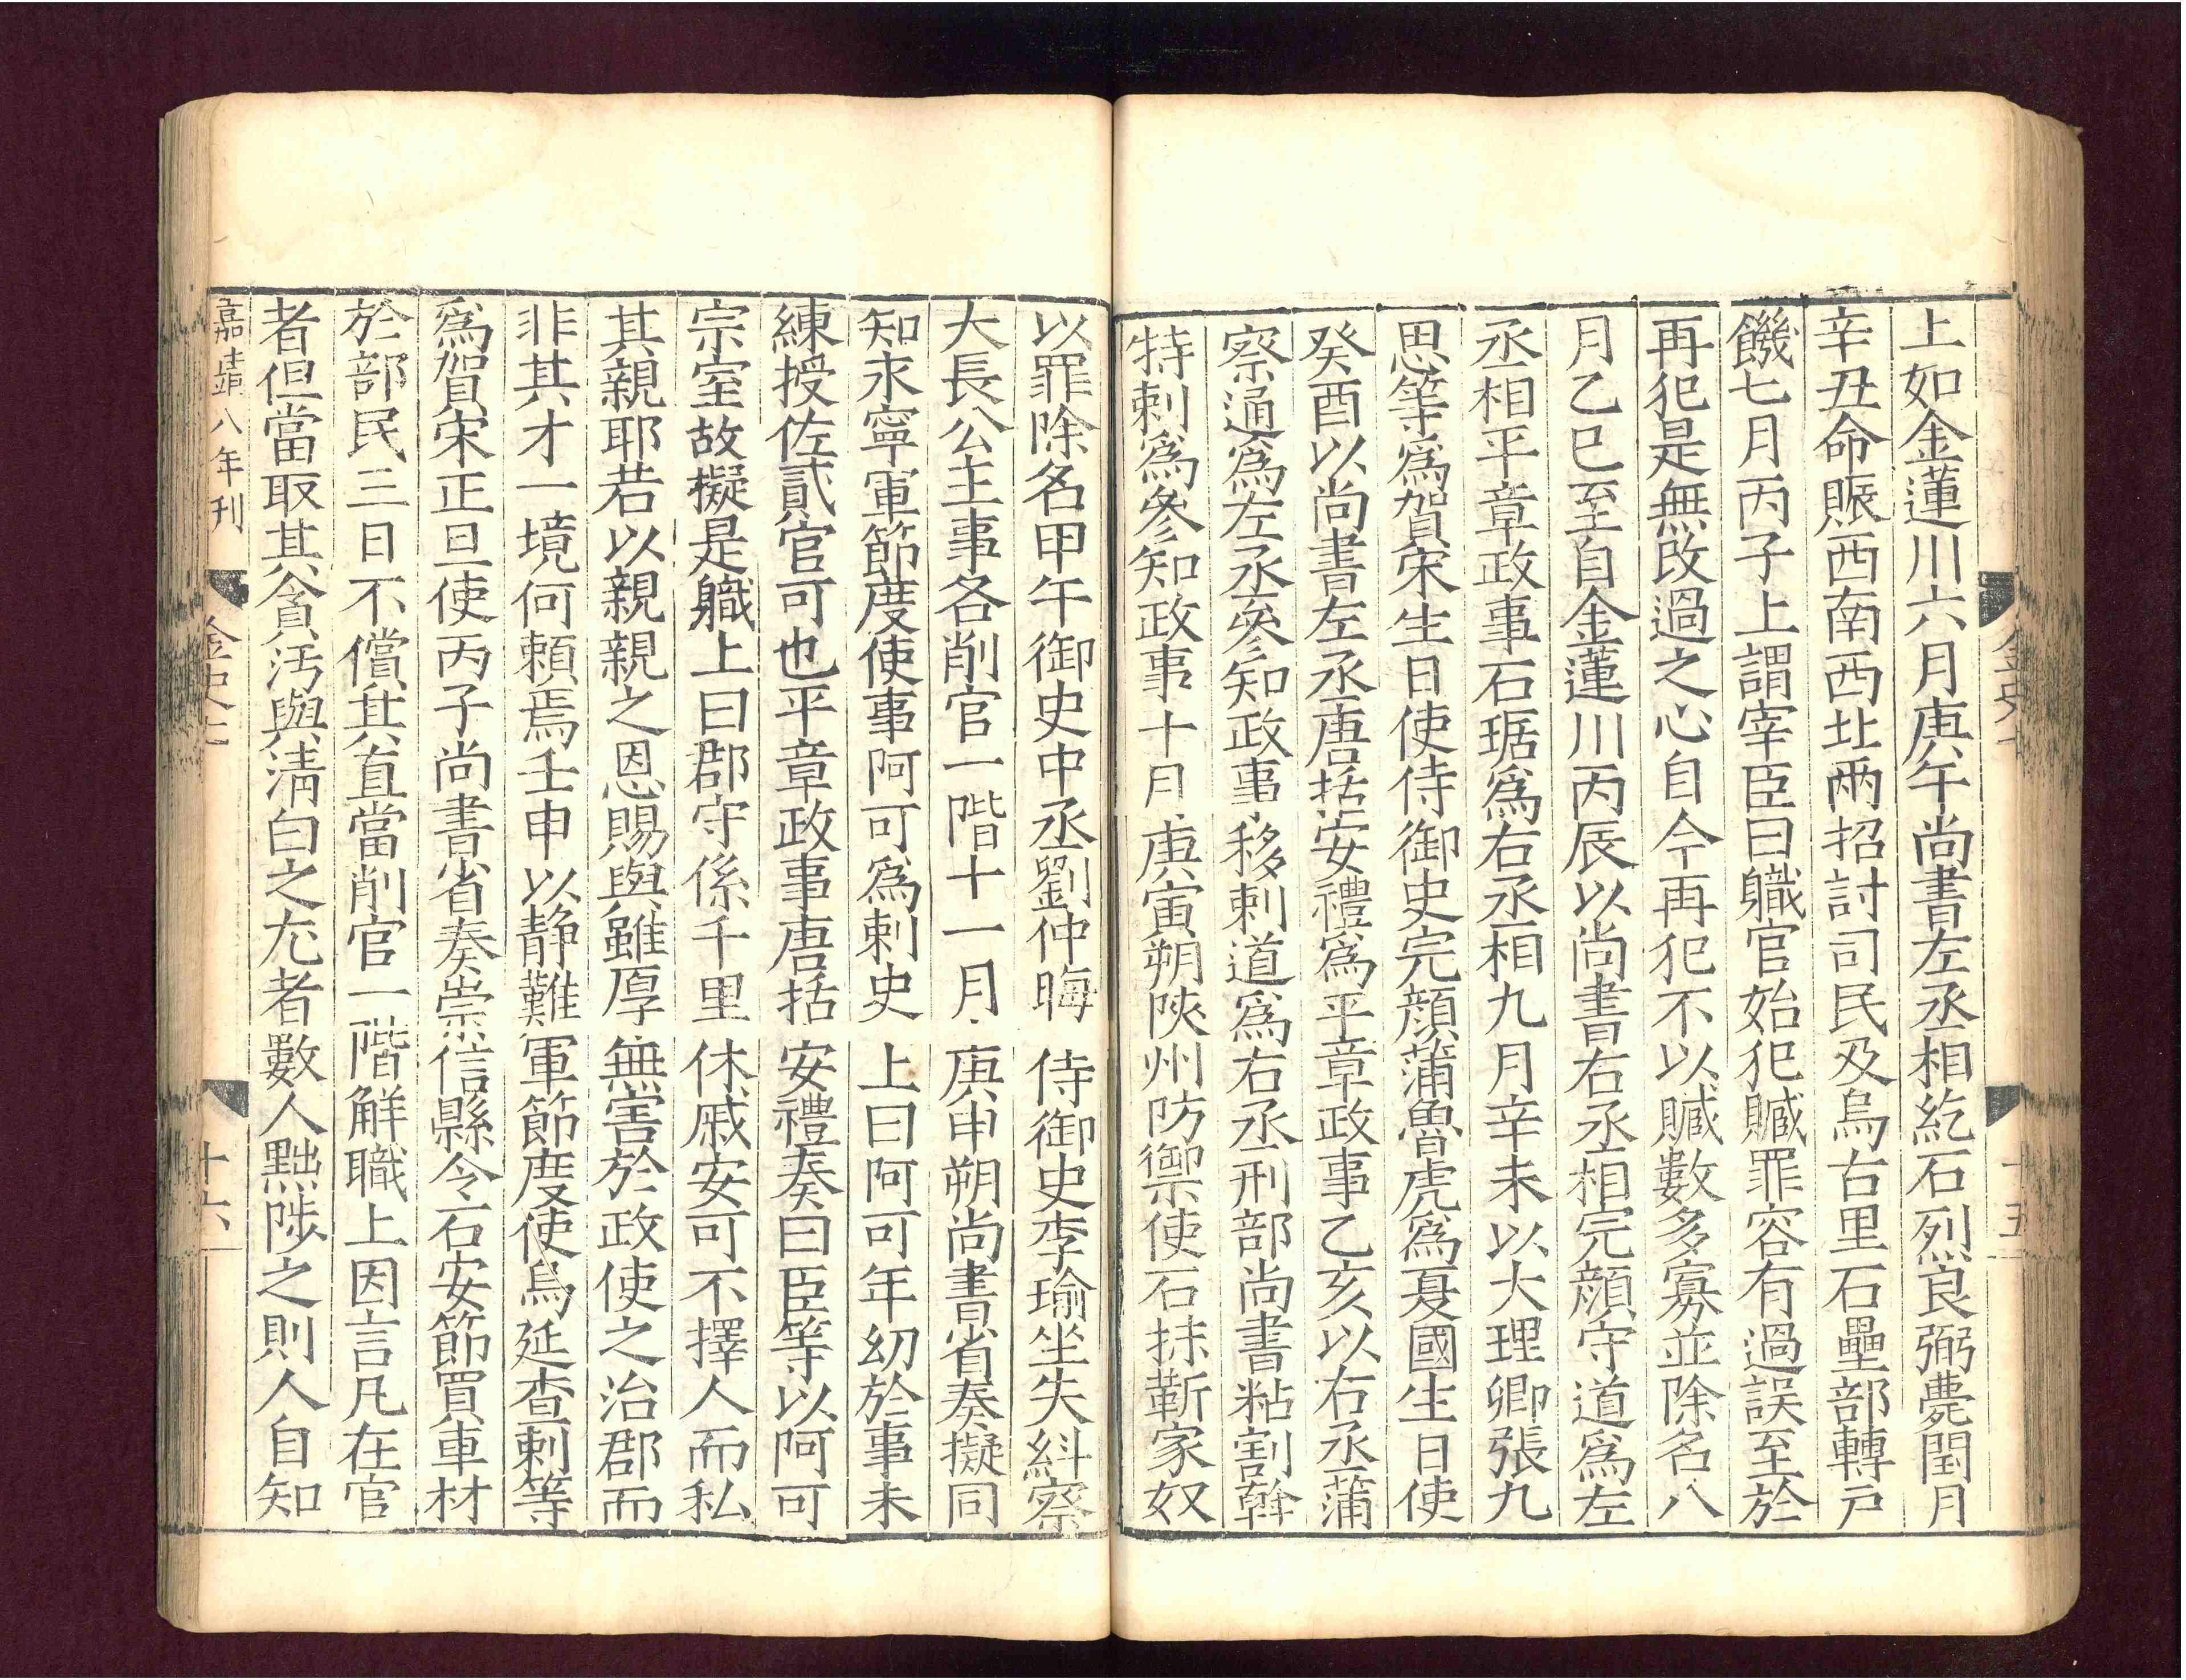 上如金蓮川六月庚午尚書左丞相紇石烈良弼薨閏月
辛丑命賑西南西北兩招討司民及烏古里石壘部轉戸
饑七月丙子上謂宰臣曰職官始犯贓罪容有過誤至於
再犯是無改過之心自今再犯不以贓數多寡並除名八
月乙巳至自金蓮川丙辰以尚書右丞相完顏守道爲左
丞相平章政事石琚爲右丞相九月辛未以大理卿張九
思等爲賀宋生日使侍御史完顏蒲魯虎爲夏國生日使
癸酉以尚書左丞唐括安禮爲平章政事乙亥以右丞蒲
察通爲左丞叅知政事移剌道爲右丞刑部尚書粘割斡
特剌爲叅知政事十月庚寅朔陝州防禦使石抹靳家奴
金史七
十五
以罪除名甲午御史中丞劉仲晦侍御史李瑜坐失糾察
大長公主事各削官一階十一月庚申朔尚書省奏擬同
知永寧軍節度使事阿可爲刺史上曰阿可年幼於事未
練授佐貳官可也平章政事唐括安禮奏曰臣等以阿可
宗室故擬是職上曰郡守係千里休戚安可不擇人而私
其親耶若以親親之恩賜與雖厚無害於政使之治郡而
非其才一境何賴焉壬申以静難軍節度使烏延查剌等
爲賀宋正旦使丙子尚書省奏崇信縣令石安節買車材
於部民三日不償其直當削官一階解職上因言凡在官
者但當取其貪汚與清白之尤者數人黜陟之則人自知
嘉靖八年刊
金史七
十六